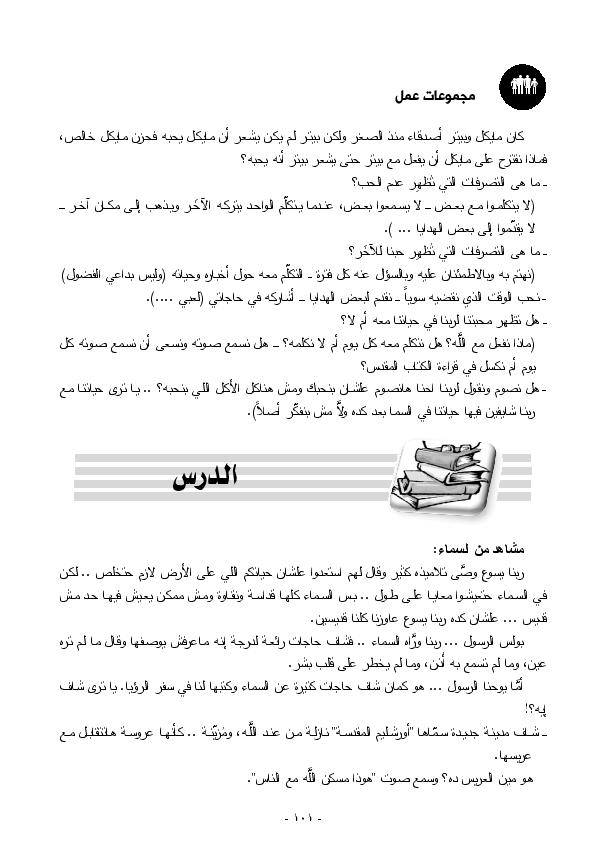 مجموعات عمل
كان مايكل وبيتر أصدقاء منذ الصغر ولكن بيتر لم يكن يشعر أن مايكل يحبه فحزن مايكل خالص،
فماذا نقترح على مايكل أن يفعل مع بيتر حتى يشعر بيتر أنه يحبه؟
ـ ما هى التصرفات التي تُظهِر عدم الحب؟
(لا يتكلموا مع بعض ــ لا يسمعوا بعض، عندما يتكلّم الواحد يتركه الآخَر ويذهب إلى مكان آخر ــ
لا يقدّموا إلى بعض الهدايا ... ).
ـ ما هى التصرفات التي تُظهِر حبنا للآخَر؟
(نهتم به وبالاطمئنان عليه وبالسؤال عنه كل فترة ـ التكلّم معه حول أخباره وحياته (وليس بداعي الفضول)
ـ نحب الوقت الذي نقضيه سوياً ـ نقدم لبعض الهدايا ــ أشاركه في حاجاتي (لعبي ....).
ـ هل تظهر محبتنا لربنا في حياتنا معه أم لا؟
(ماذا نفعل مع اللَّه؟ هل نتكلم معه كل يوم أم لا نكلمه؟ ــ هل نسمع صوته ونسعى أن نسمع صوته كل
يوم أم نكسل في قراءة الكتاب المقدس؟
ـ هل نصوم ونقول لربنا احنا هانصوم علشان بنحبك ومش هناكل الأكل اللي بنحبه؟ .. يا ترى حياتنا مع
ربنا شايفين فيها حياتنا في السما بعد كده ولاَّ مش بنفكّر أصلاً).
الدرس
مشاهد من لسماء:
ربنا يسوع وصَّى تلاميذه كتير وقال لهم استعدوا علشان حياتكم اللي على الأرض لازم حتخلص .. لكن
في السماء حتعيشوا معايا على طول .. بس السماء كلها قداسة ونقاوة ومش ممكن يعيش فيها حد مش
قديس ... علشان كده ربنا يسوع عاوزنا كلنا قديسين.
بولس الرسول ... ربنا ورَّاه السماء .. فشاف حاجات رائعة لدرجة إنه ماعرفش يوصفها وقال ما لم تره
عين، وما لم تسمع به أُذن، وما لم يخطر على قلب بشر.
أمَّا يوحنا الرسول ... هو كمان شاف حاجات كتيرة عن السماء وكتبها لنا في سفر الرؤيا. يا ترى شاف
إيه؟!
ــ شاف مدينة جديدة سمّاها "أورشليم المقدسة" نازلة من عند اللَّه، ومُزيّنة .. كأنها عروسة هاتتقابل مع
عريسها.
هو مين العريس ده؟ وسمع صوت "هوذا مسكن اللَّه مع الناس".
- ١٠١ -